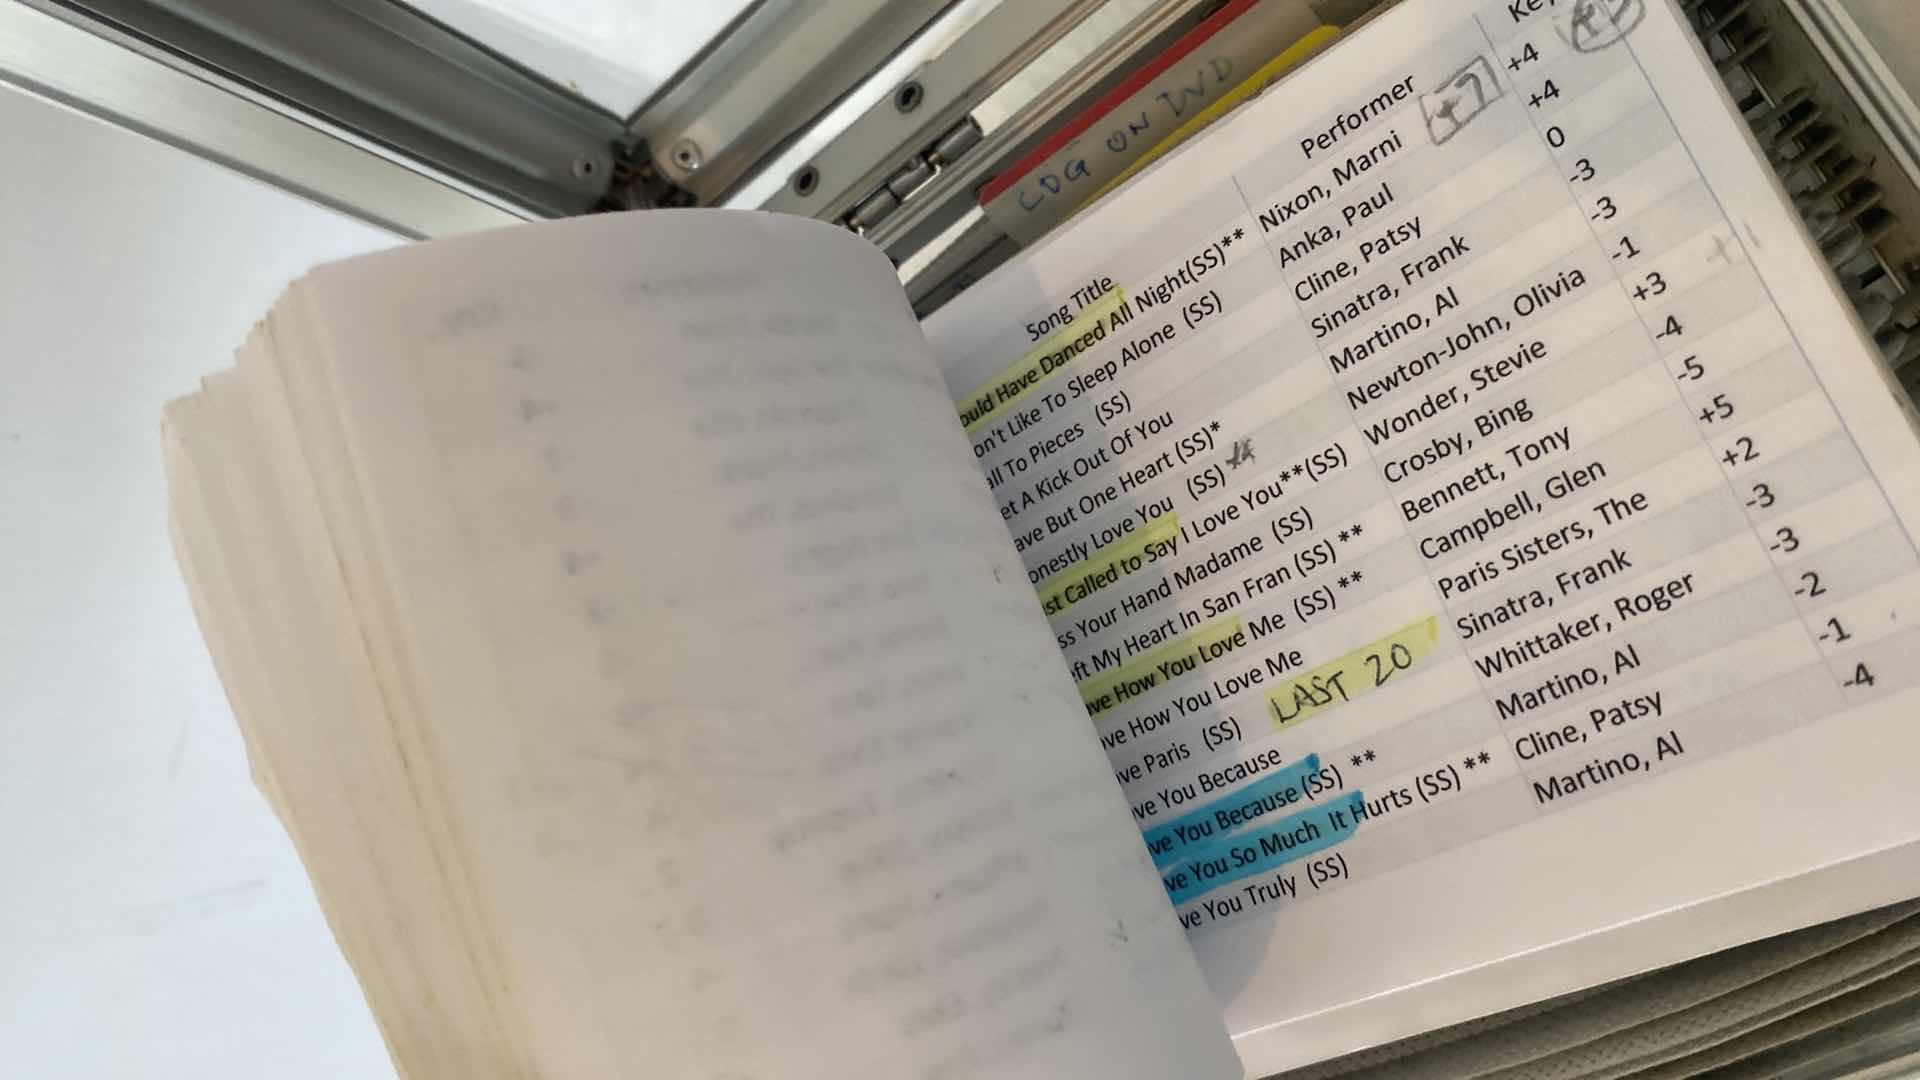 CDG ON DVD
Song Title Performer Key
ould Have Danced All Night(SS)** Nixon, Marni +7 +4
on't Like To Sleep Alone (SS) Anka, Paul +4
all To Pieces (SS) Cline, Patsy 0
et A Kick Out Of You Sinatra, Frank -3
ave But One Heart (SS)* Martino, Al -3
onestly Love You (SS) +4 Newton-John, Olivia -1
st Called to Say I Love You**(SS) Wonder, Stevie +3
ss Your Hand Madame (SS) Crosby, Bing -4
eft My Heart In San Fran (SS) ** Bennett, Tony -5
ove How You Love Me (SS) ** Campbell, Glen +5
ove How You Love Me Paris Sisters, The +2
ove Paris (SS) LAST 20 Sinatra, Frank -3
ve You Because Whittaker, Roger -3
ve You Because (SS) ** Martino, Al -2
ve You So Much It Hurts (SS) ** Cline, Patsy -1
ve You Truly (SS) Martino, Al -4